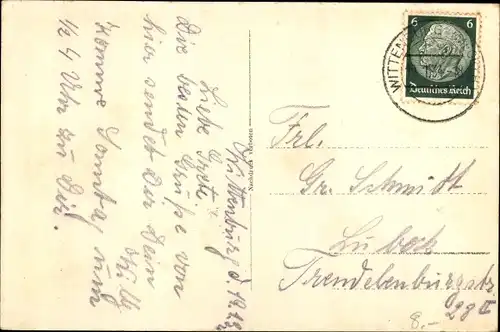 Wittenburg d. 19.12.
Liebe Grete
Die besten Grüße von
hier sendet Dir Dein
Willi
Komme Sonntag um
½ 4 Uhr zu Dir.
Nachdruck verboten
6 6
Deutsches Reich
WITTENBURG
Frl.
Gr. Schmidt
Lübeck
Trendelenburgstr.
28 II
8.-